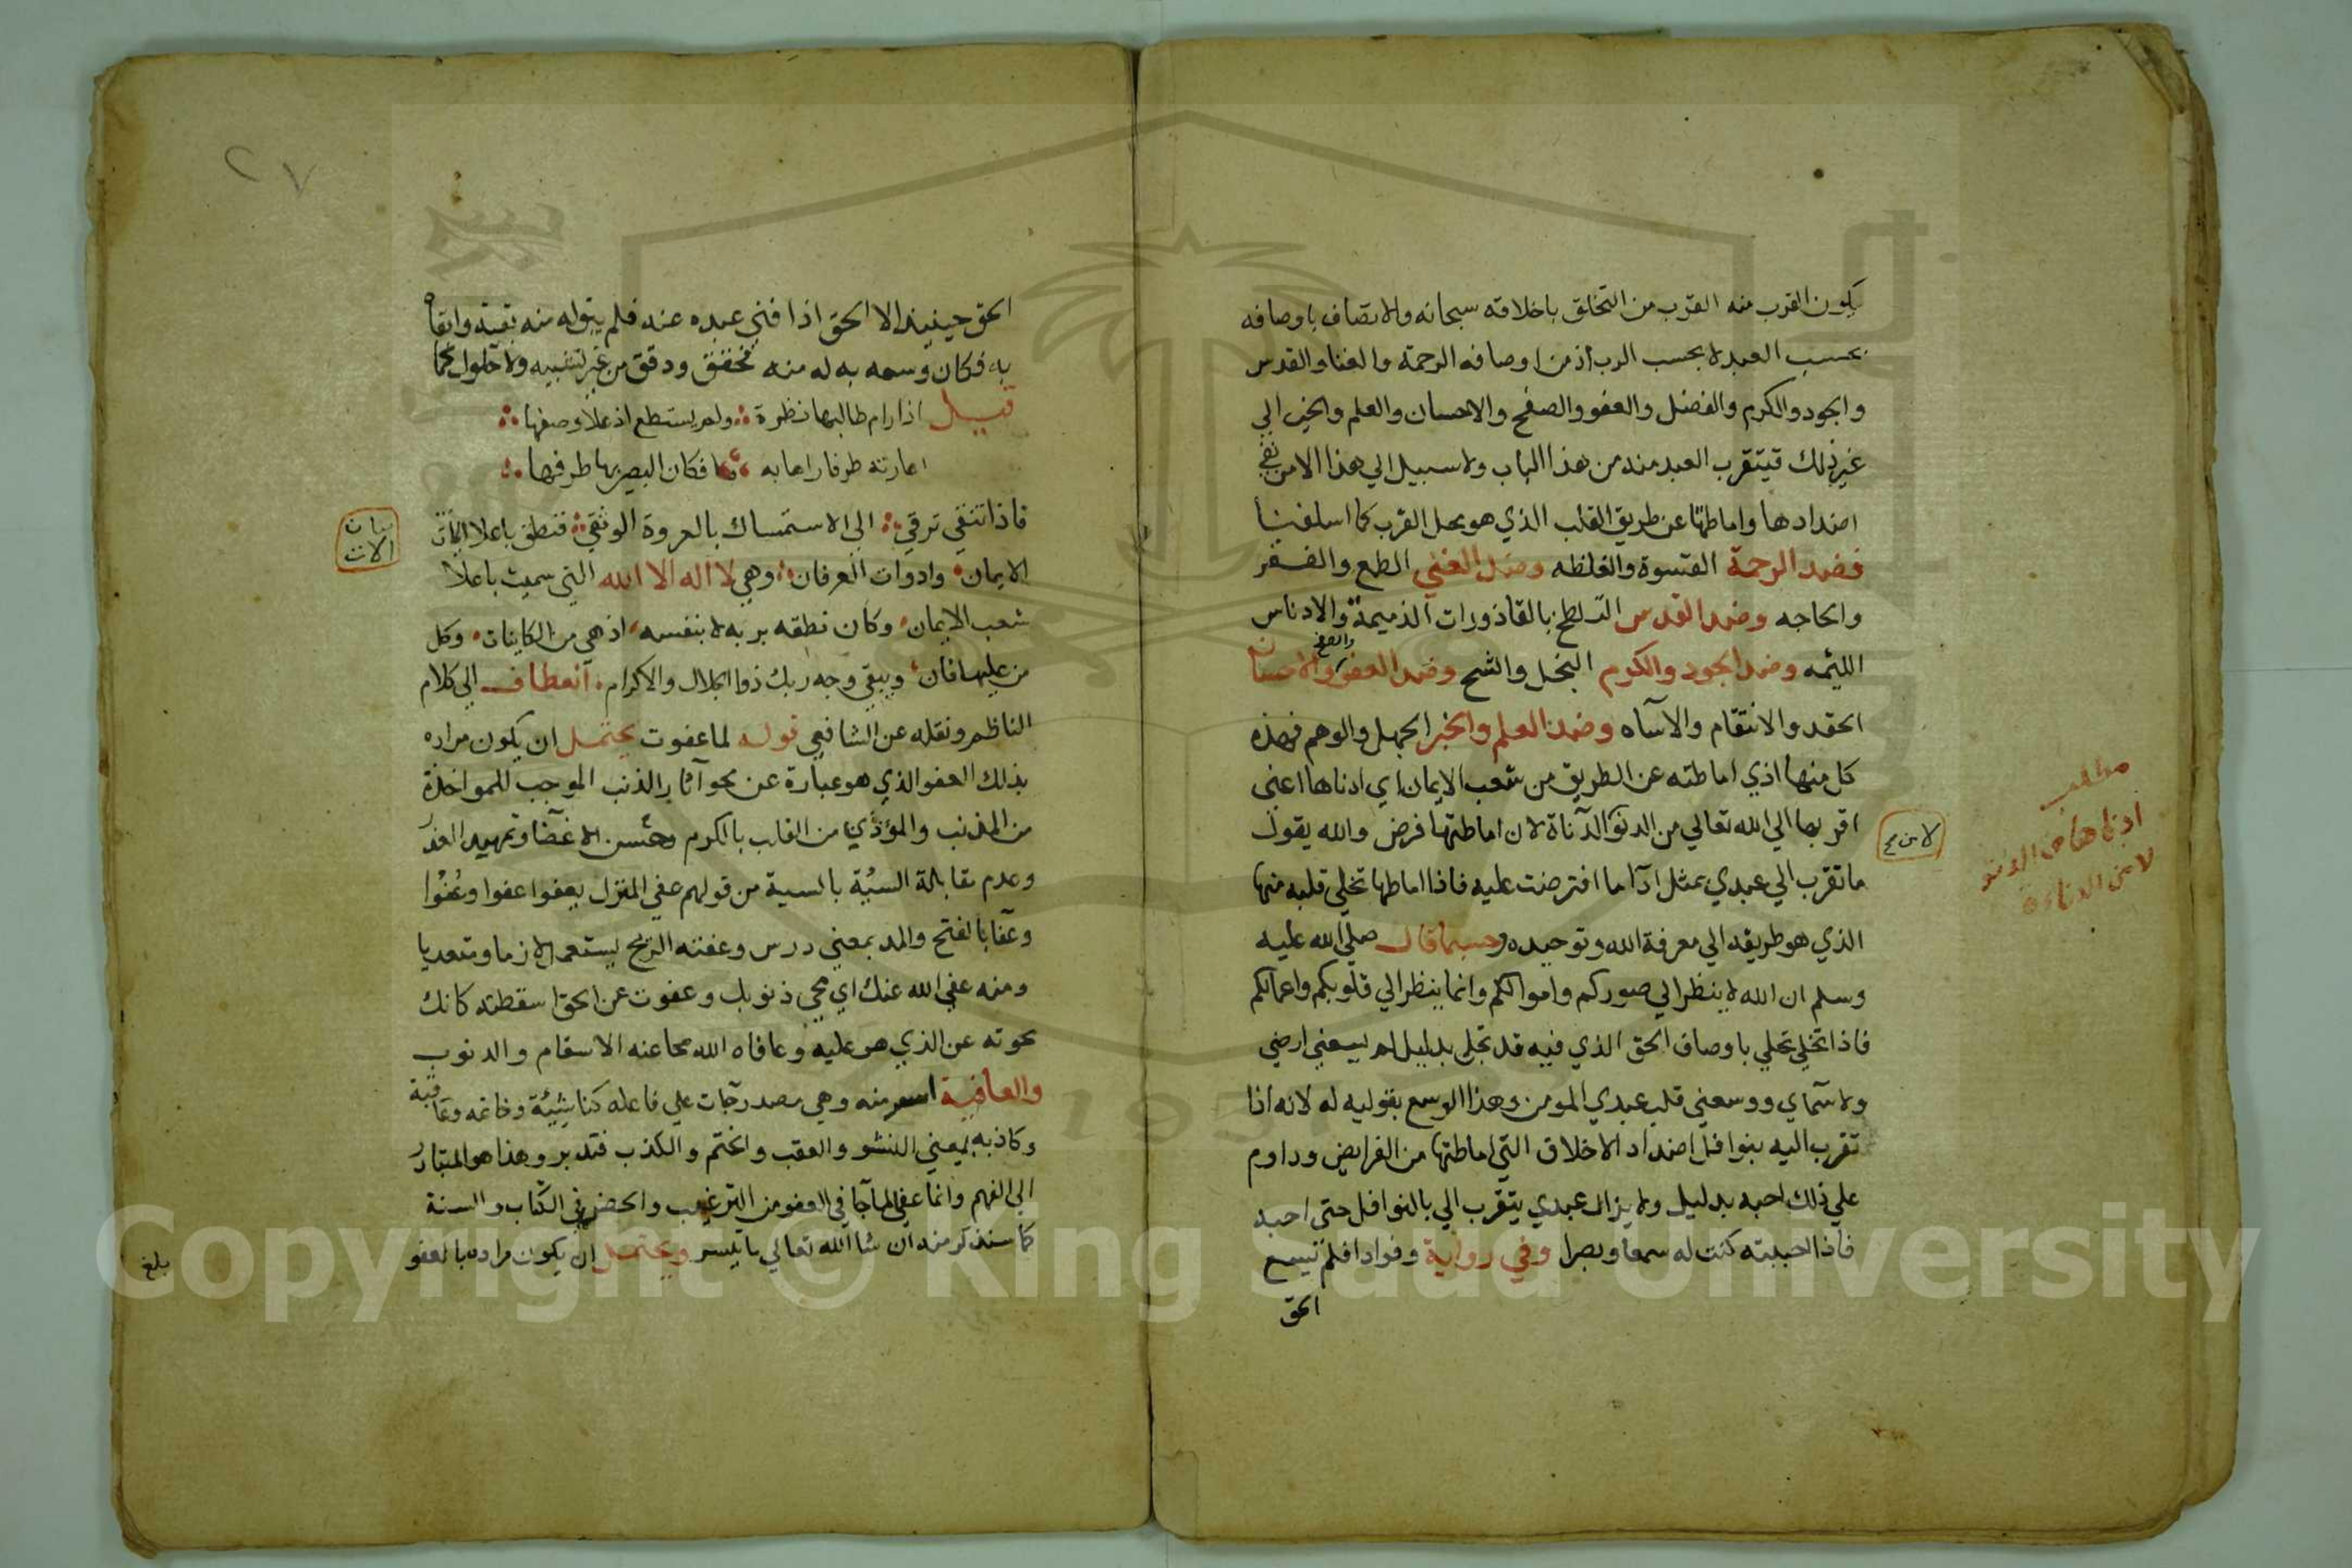 يكون القرب منه القرب من التخلق باخلاقه سبحانه والاتصاف باوصافه
بحسب العبد لا بحسب الرب اذ من اوصافه الرحمة والغنا والقدس
والجود والكرم والفضل والعفو والصفح والاحسان والعلم والخبر الي
غير ذلك فيتقرب العبد منه من هذا الباب ولا سبيل الي هذا الا من نفي
اضدادها واماطتها عن طريق القلب الذي هو محل القرب كما اسلفنا
فضد الرحمة القسوة والغلظه وضد الغني الطمع والفقر
والحاجه وضد القدس التلطخ بالقاذورات الذميمة والادناس
اللئيمه وضد الجود والكرم البخل والشح وضد العفو والصفح والاحسان
الحقد والانتقام والاسآه وضد العلم والخبر الجهل والوهم فهذه
كل منها اذي اماطته عن الطريق من شعب الايمان اي ادناها اعني
اقربها الي الله تعالي من الدنو لا الدناة لان اماطتها فرض والله يقول
ما تقرب الي عبدي بمثل ادآ ما افترضت عليه فاذا اماطها تخلي قلبه منها
الذي هو طريقه الي معرفة الله وتوحيده وحسبما قال صلي الله عليه
وسلم ان الله لا ينظر الي صوركم واموالكم وانما ينظر الي قلوبكم واعمالكم
فاذا تخلي تحلي باوصاف الحق الذي فيه قد تجلي بدليل لم يسعني ارضي
ولا سمآي ووسعني قلب عبدي المومن وهذا الوسع بقوليه له لانه اذا
تقرب اليه بنوافل اضداد الاخلاق التي اماطتها من الفرايض وداوم
علي ذلك احبه بدليل ولا يزال عبدي يتقرب الي بالنوافل حتي احبه
فاذا احببته كنت له سمعا وبصرا وفي رواية وفوادا فلم يسع
الحق
مطلب
ادناها من الدنو
لا من الدناءة
الحق حينيذ الا الحق اذا فني عبده عنه فلم يبق له منه بقية وابقاه
به فكان وسعه به له منه فحقق ودقق من غير تشبيه ولا حلول كما
قيل اذا رام طالبها نظرة ولم يستطع اذ علا وصفها
اعارته طرفا راها به فكان البصير بها طرفها
فاذا تنقي ترقي الي الاستمساك بالعروة الوثقي فنطق باعلا
الايمان وادوات العرفان وهي لا اله الا الله التي سميت باعلا
شعب الايمان وكان نطقه بربه لا بنفسه اذ هي من الكاينات وكل
من عليها فان ويبقي وجه ربك ذو الجلال والاكرام انعطاف الي كلام
الناظم ونقله عن الشافعي قوله لما عفوت يحتمل ان يكون مراده
بذلك العفو الذي هو عبارة عن محو آثار الذنب الموجب للمواخذة
من المذنب والمؤذي من القلب بالكرم وحسن الاغضا وتمهيد العذر
وعدم مقابلة السيئة بالسية من قولهم عفي المنزل يعفوا عفوا وعُفُوا
وعفآ بالفتح والمد بمعني درس وعفته الريح يستعمل لازما ومتعديا
ومنه عفي الله عنك اي محي ذنوبك وعفوت عن الحق اسقطته كانك
محوته عن الذي هو عليه وعافاه الله محا عنه الاسقام والذنوب
والعافية اسم منه وهي مصدر جآت علي فاعله كناشيئة وخاتمه وعاقبة
وكاذبه بمعني النشو والعقب والختم والكذب فتدبر وهذا هو المتبادر
الي الفهم وانما عفي لما جآ في العفو من الترغيب والحض في الكتاب والسنة
كما سنذكر منه ان شا الله تعالي ما تيسر ويحتمل ان يكون مراده بالعفو
بلغ